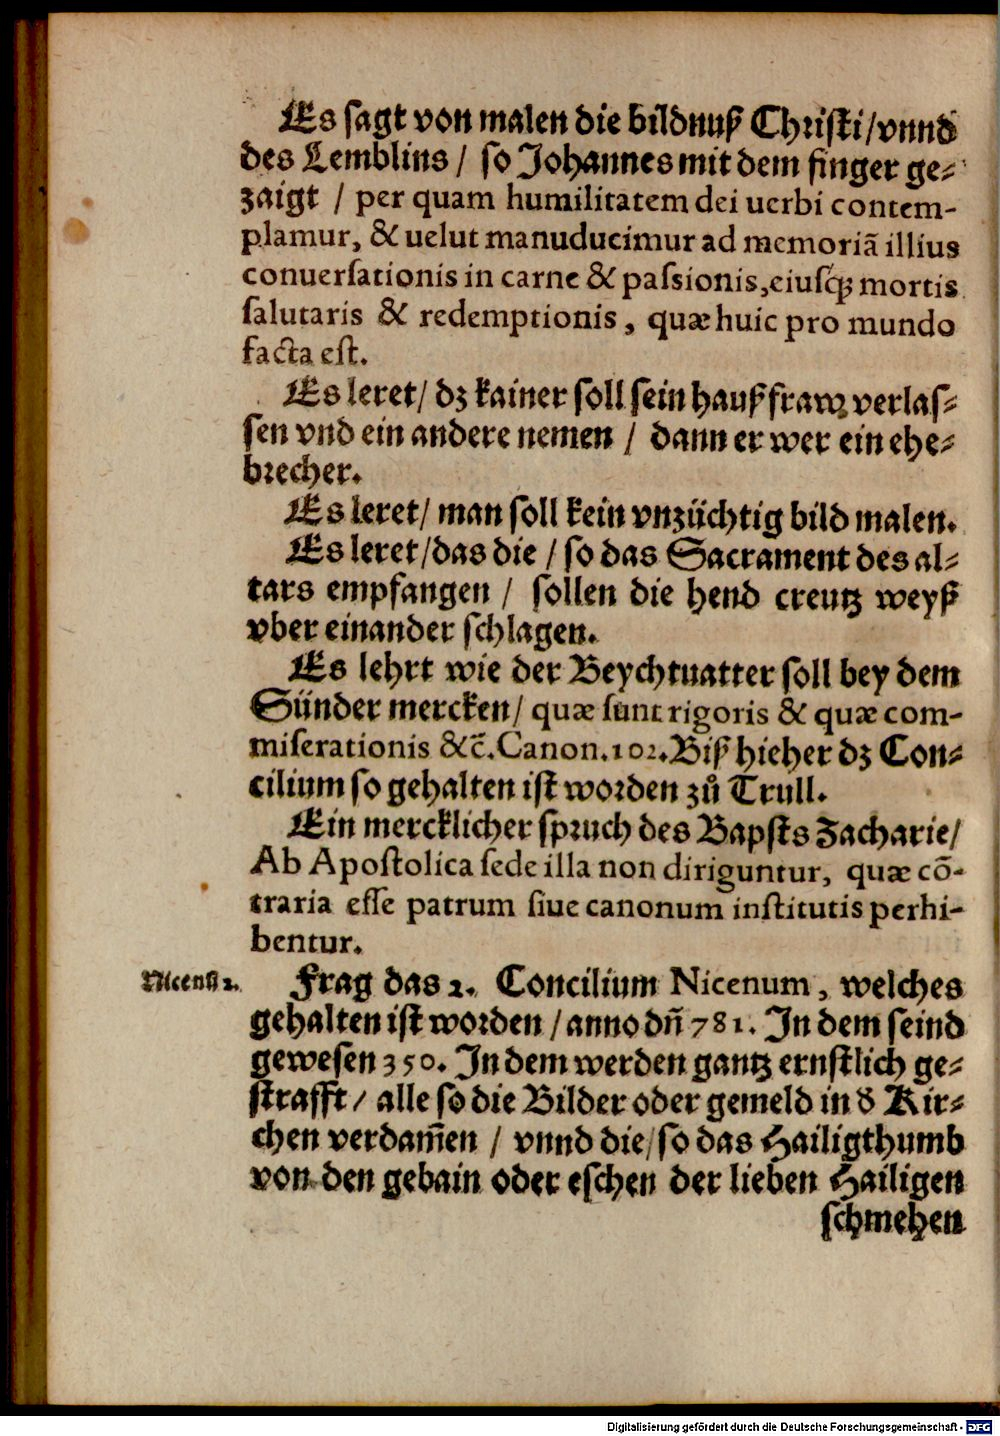 Es sagt von malen die bildnuß Christi / vnnd
des Lemblins / so Johannes mit dem finger ge⸗
zaigt / per quam humilitatem dei uerbi contem-
plamur, & uelut manuducimur ad memoriã illius
conuersationis in carne & passionis, eiusq́ꝫ mortis
salutaris & redemptionis, quæ huic pro mundo
facta est.
Es leret / dz kainer soll sein haußfraw verlas⸗
sen vnd ein andere nemen / dann er wer ein ehe⸗
brecher.
Es leret / man soll kein vnzüchtig bild malen.
Es leret / das die / so das Sacrament des al⸗
tars empfangen / sollen die hend creutz weyß
vber einander schlagen.
Es lehrt wie der Beychtuatter soll bey dem
Sünder mercken / quæ sunt rigoris & quæ com-
miserationis &c̃. Canon. 102. Biß hieher dz Con⸗
cilium so gehalten ist worden zů Trull.
Ein mercklicher spruch des Bapsts Zacharie /
Ab Apostolica sede illa non diriguntur, quæ cõ-
traria esse patrum siue canonum institutis perhi-
bentur.
Nicenũ 2.
Frag das 2. Concilium Nicenum, welches
gehalten ist worden / anno dñ 781. In dem seind
gewesen 350. In dem werden gantz ernstlich ge⸗
strafft / alle so die Bilder oder gemeld in d̕ Kir⸗
chen verdam̃en / vnnd die / so das Hailigthumb
von den gebain oder eschen der lieben Hailigen
schmehen
Digitalisierung gefördert durch die Deutsche Forschungsgemeinschaft - DFG